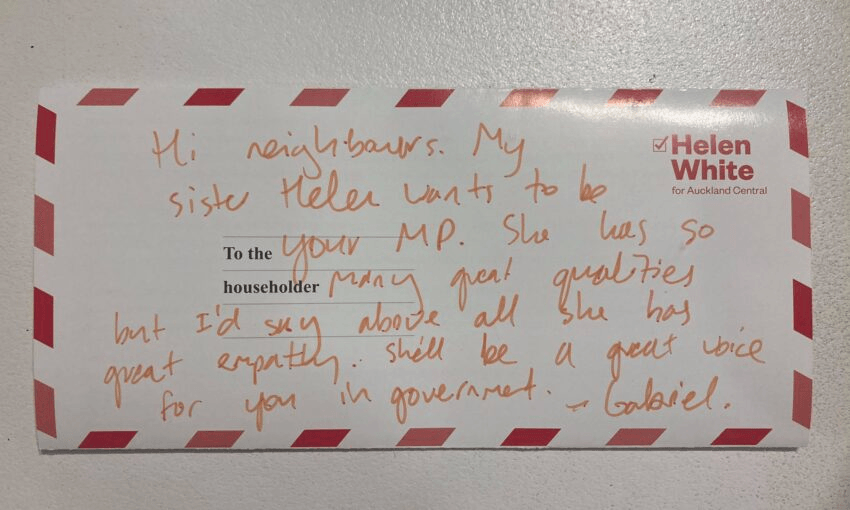 Hi neighbours. My
sister Helen wants to be
your MP. She has so
many great qualities
but I'd say above all she has
great empathy. She'll be a great voice
for you in government. – Gabriel.
To the
householder
Helen
White
for Auckland Central